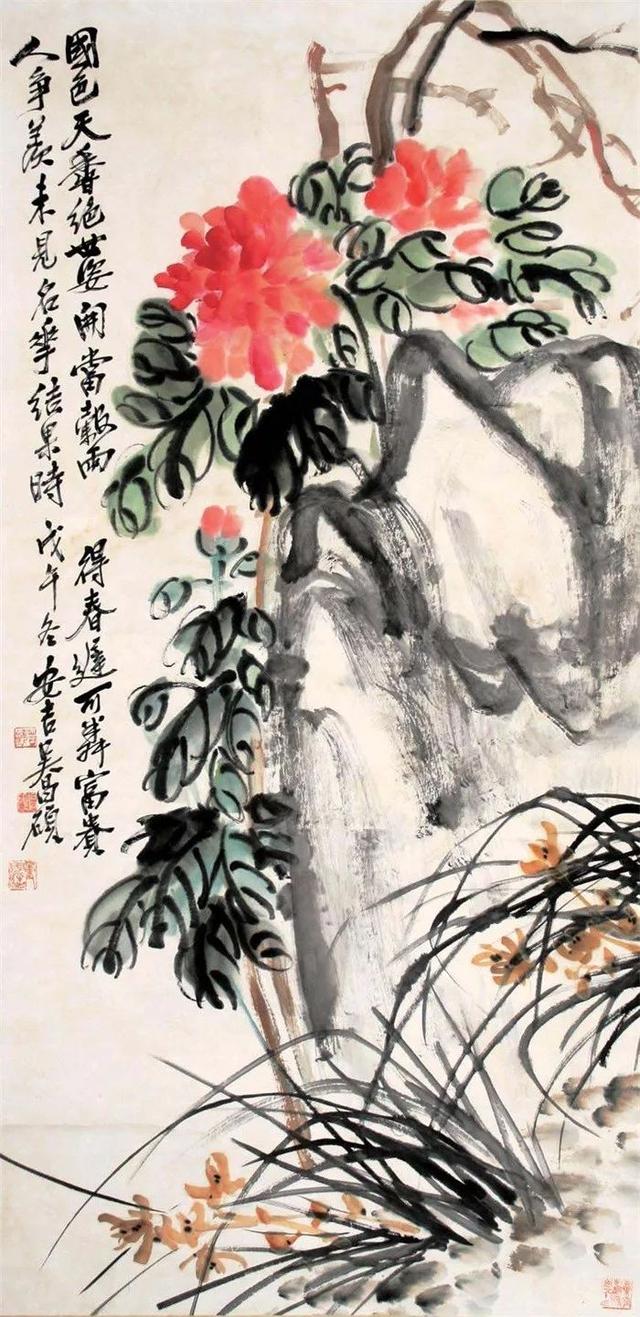 國色天香絕世姿開當穀雨得春遲可粦富貴
人爭羨未見名華結果時 戊午冬安吉吳昌碩